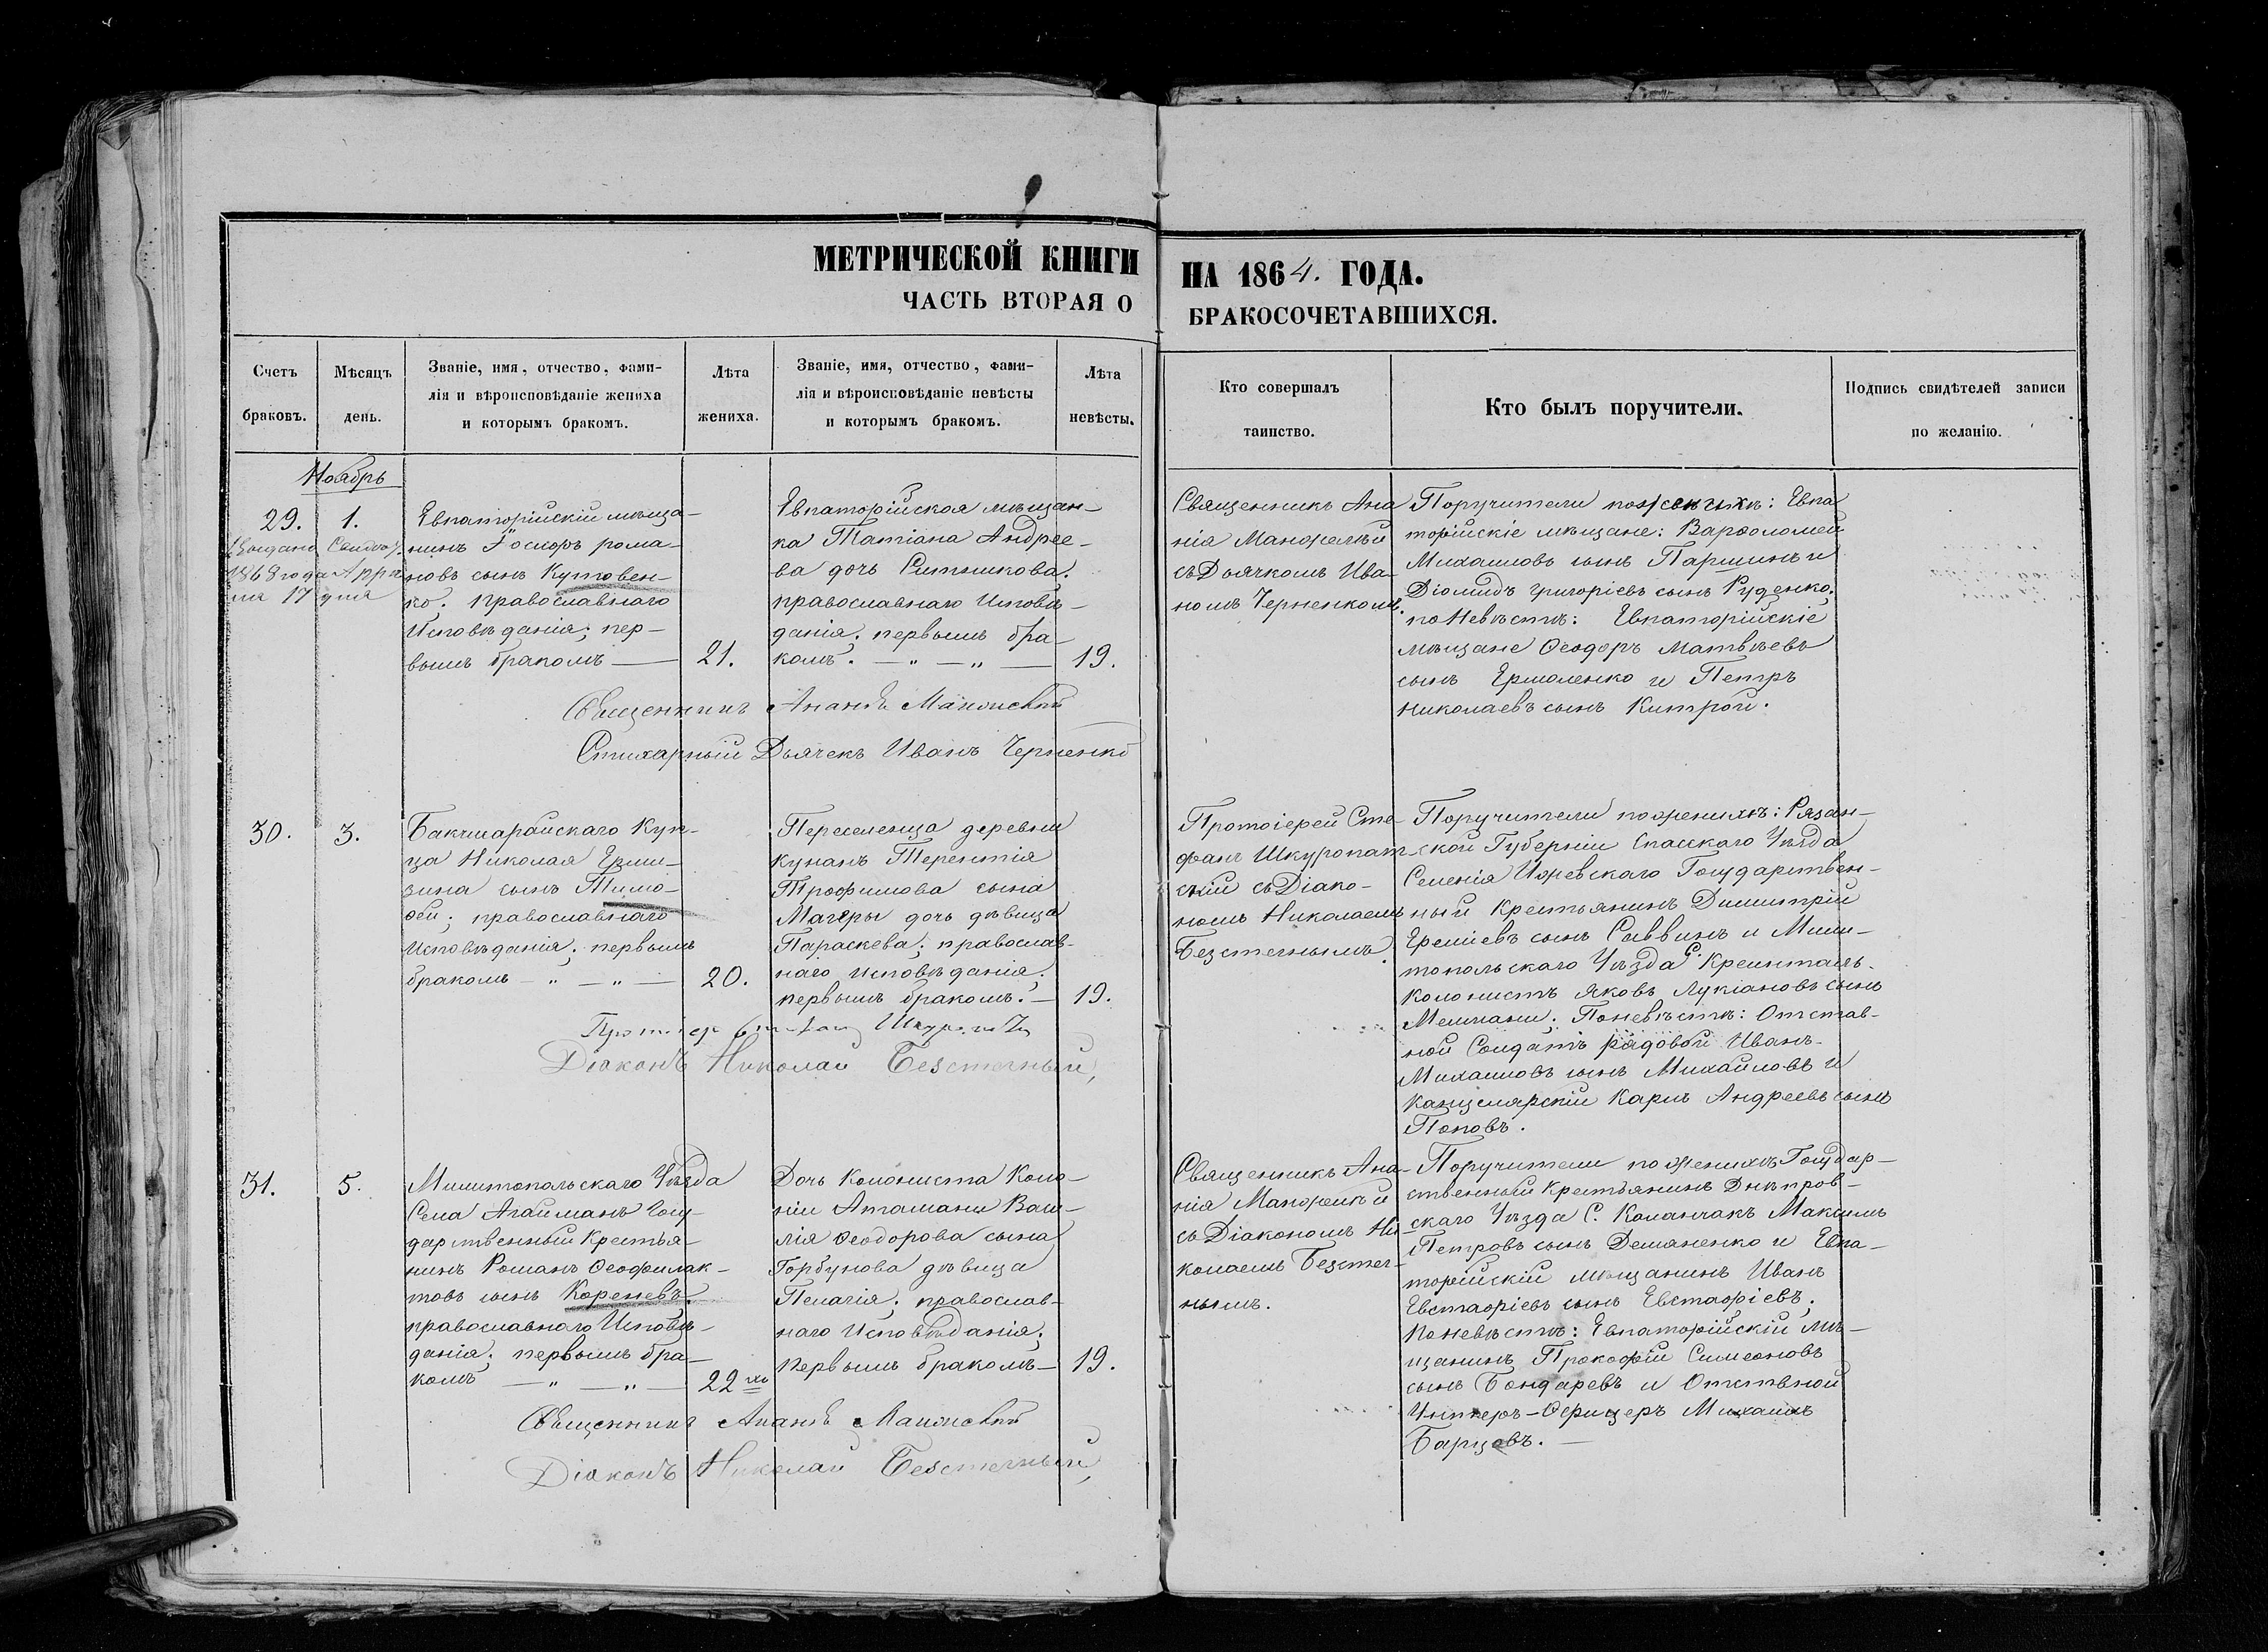 МЕТРИЧЕСКОЙ КНИГИ НА 1864. ГОДА.
ЧАСТЬ ВТОРАЯ О БРАКОСОЧЕТАВШИХСЯ.
Счетъ
браковъ.
Мѣсяцъ
день.
Званіе, имя, отчество, фами-
лія и вѣроисповѣданіе жениха
и которымъ бракомъ.
Лѣта
жениха.
Званіе, имя, отчество, фами-
лія и вѣроисповѣданіе невѣсты
и которымъ бракомъ.
Лѣта
невѣсты.
Кто совершалъ
таинство.
Кто былъ поручители.
Подпись свидѣтелей записи
по желанію.
Ноябрь
29.
1.
1868 года Апрѣ
ля 17 дня
Евпаторійскій мѣща-
нинъ рома-
новъ сынъ Кутовен-
ко. православнаго
Исповѣданія; пер-
вымъ бракомъ —
21.
Евпаторійская мѣщан-
ка Татіана Андрее-
ва дочь Ситникова.
православнаго Исповѣ-
данія; первымъ бра-
комъ. — „ — „ —
19.
Священникъ Ана
нія
съ Дьячкомъ Ива-
номъ Черненкомъ.
Поручители по женихѣ: Евпа
торійскіе мѣщане: Варфоломей
Михаиловъ сынъ Паршинъ и
Діомидъ Григоріевъ сынъ Руденко;
по Невѣстѣ: Евпаторійскіе
мѣщане Ѳеодоръ Матвѣевъ
сынъ Ермоленко и Петръ
Николаевъ сынъ Китрой.
Священникъ Ананія
Стихарный Дьячекъ Иванъ Черненко
30.
3.
Бакчисарайскаго Куп-
ца Николая
зина сынъ Тимо-
ѳей; православнаго
Исповѣданія; первымъ
бракомъ — „ — „ —
20.
Переселенца деревни
Кунанъ Терентія
Трофимова сына
Магеры дочь дѣвица
Параскева; православ-
наго исповѣданія;
первымъ бракомъ. —
19.
Протоіерей Сте-
фанъ Шкуропат-
скій съ Діако-
номъ Николаемъ
Безстечнымъ.
Поручители по женихѣ: Рязан-
ской Губерніи Спасскаго Уѣзда
Селенія Ижевскаго Государствен-
ный Крестьянинъ Димитрій
Еремѣевъ сынъ Саввинъ и Мили-
топольскаго Уѣзда С.
колонистъ Яковъ Лукіановъ сынъ
по Невѣстѣ: Отстав-
ной Солдатъ рядовой Иванъ
Михаиловъ сынъ Михайловъ и
Канцелярскій Карпъ Андреевъ сынъ
Поповъ.
Діаконъ Николай Безстечный,
31.
5.
Милитопольскаго Уѣзда
Села Агайманъ Госу-
дарственный Крестья-
нинъ Романъ Ѳеофилак-
товъ сынъ Кореневъ.
православнаго Исповѣ-
данія; первымъ бра-
комъ — „ — „ —
22
Дочь Колониста Коло-
ніи Атаманы Васи-
лія Ѳеодорова сына
Горбунова дѣвица
Пелагія; православ-
наго Исповѣданія;
первымъ бракомъ —
19.
Священникъ Ана-
нія
съ Діакономъ Ни-
колаемъ Безстеч-
нымъ.
Поручители по женихѣ Государ-
ственный Крестьянинъ Днѣпров-
скаго Уѣзда С. Каланчакъ Максимъ
Петровъ сынъ Демяненко и Евпа-
торійскій мѣщанинъ Иванъ
Евстафіевъ сынъ Евстафіевъ;
по невѣстѣ: Евпаторійскій мѣ-
щанинъ Прокофій Симеоновъ
сынъ Бондаревъ и Отствной
Унтеръ-Офицеръ Михаилъ
Барцовъ. —
Священникъ Ананія
Діаконъ Николай Безстечный,